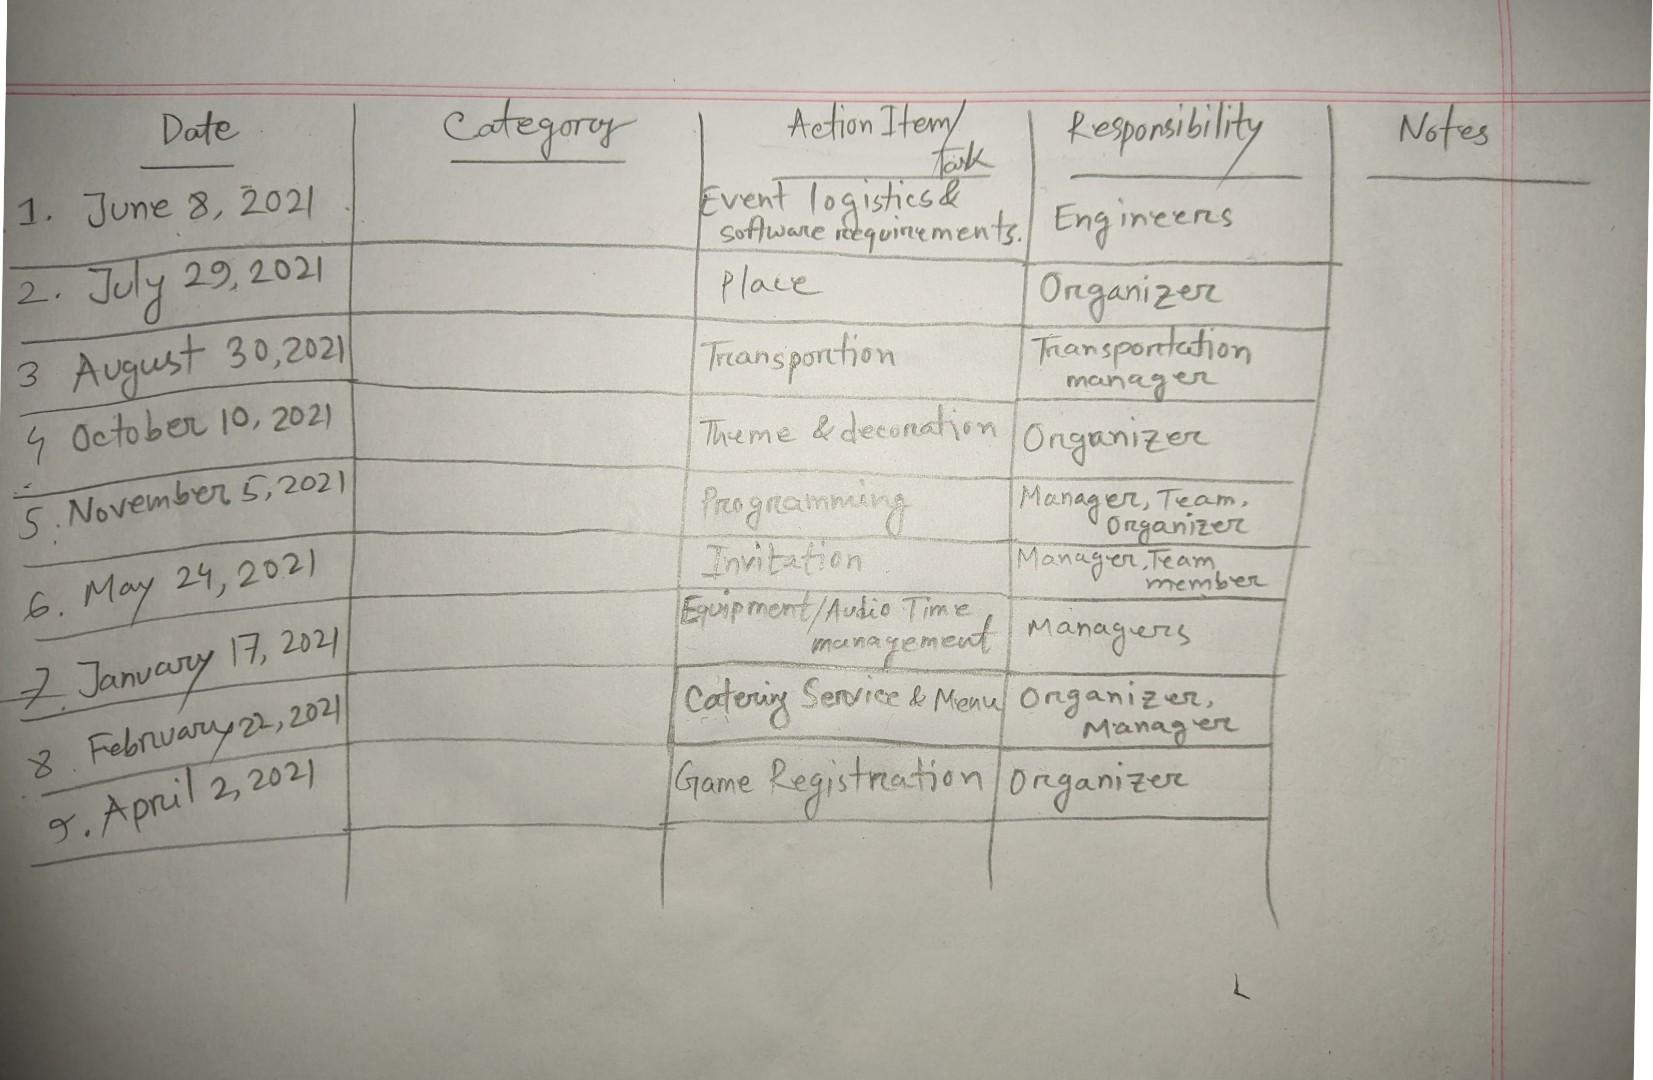 Date Category Action Item/ Responsibility Notes
Task
1. June 8, 2021 Event logistics & Engineers
software requirements.
2. July 29, 2021 Place Organizer
3 August 30, 2021 Transportion Transportation
manager
4 October 10, 2021 Theme & decoration Organizer
5. November 5, 2021 Programming Manager, Team,
Organizer
6. May 24, 2021 Invitation Manager, Team
member
7. January 17, 2021 Equipment/Audio Time Managers
management
8 February 22, 2021 Catering Service & Menu Organizer,
Manager
9. April 2, 2021 Game Registration Organizer